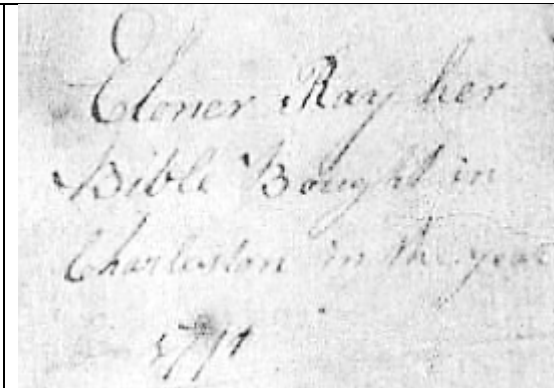 Eloner Ray her
Bible Bought in
Charleston in the year